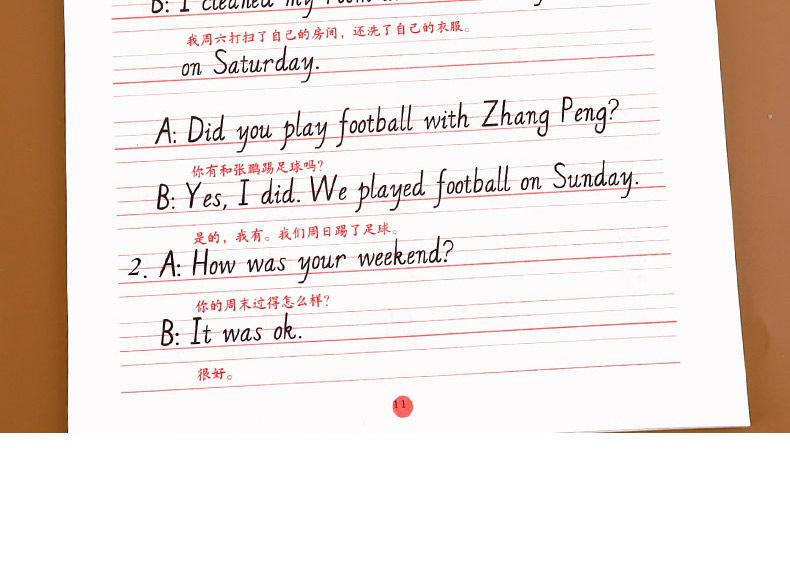 B: I cleaned my room
我周六打扫了自己的房间，还洗了自己的衣服。
on Saturday.
A: Did you play football with Zhang Peng?
你有和张鹏踢足球吗？
B: Yes, I did. We played football on Sunday.
是的，我有。我们周日踢了足球。
2. A: How was your weekend?
你的周末过得怎么样？
B: It was ok.
很好。
11